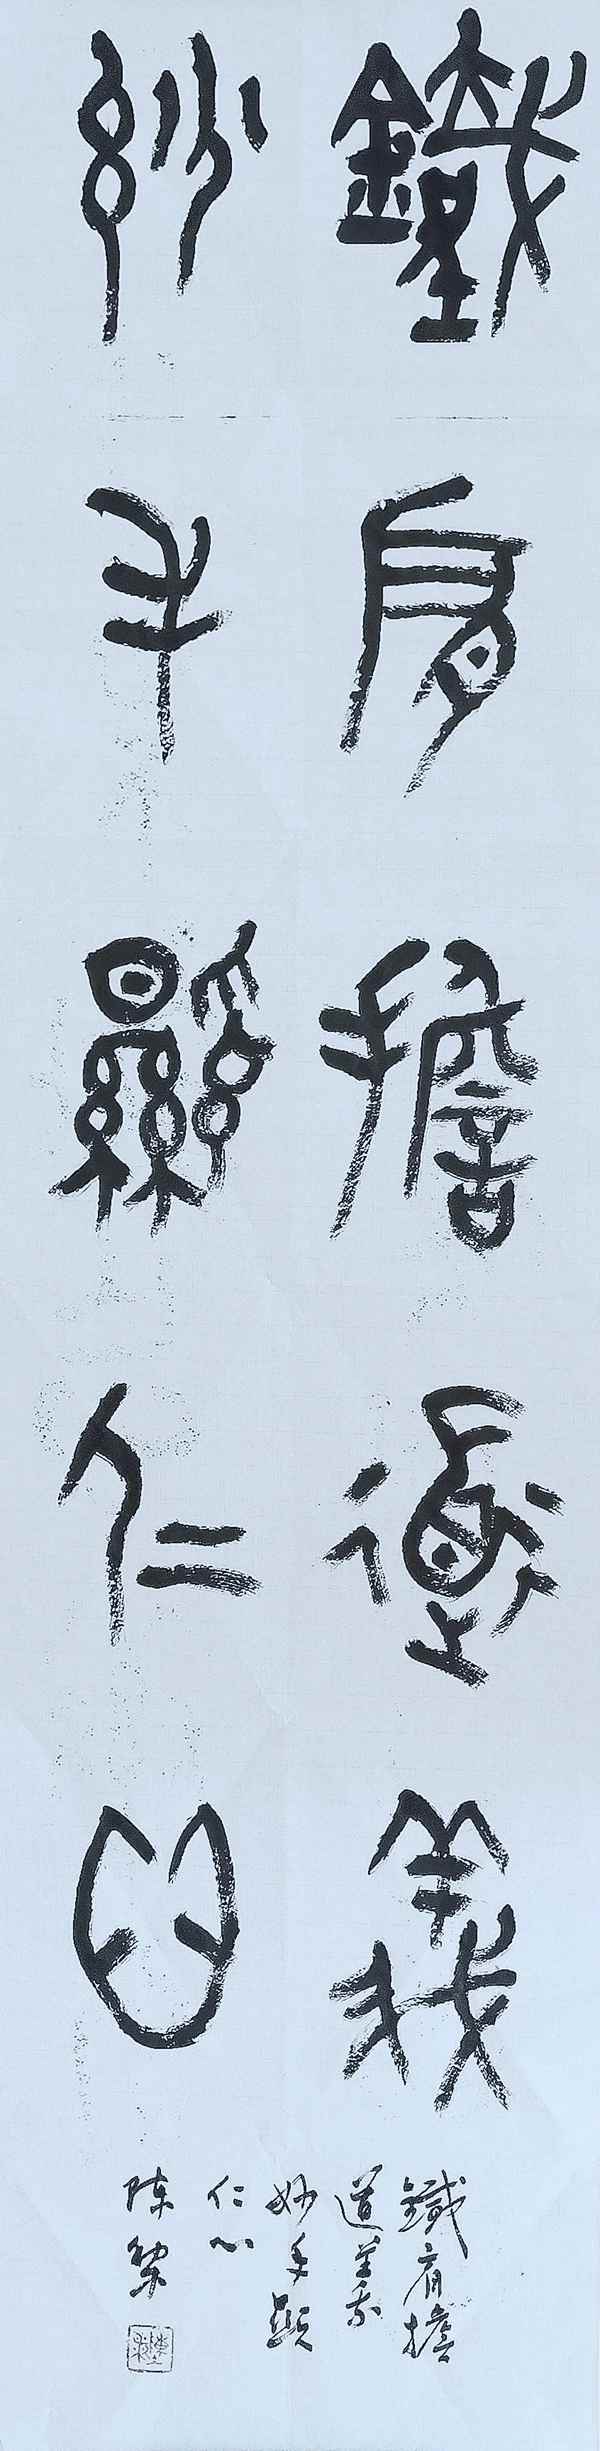 鐵肩擔道義
妙手顯仁心
鐵肩擔
道義
妙手顯
仁心
陈